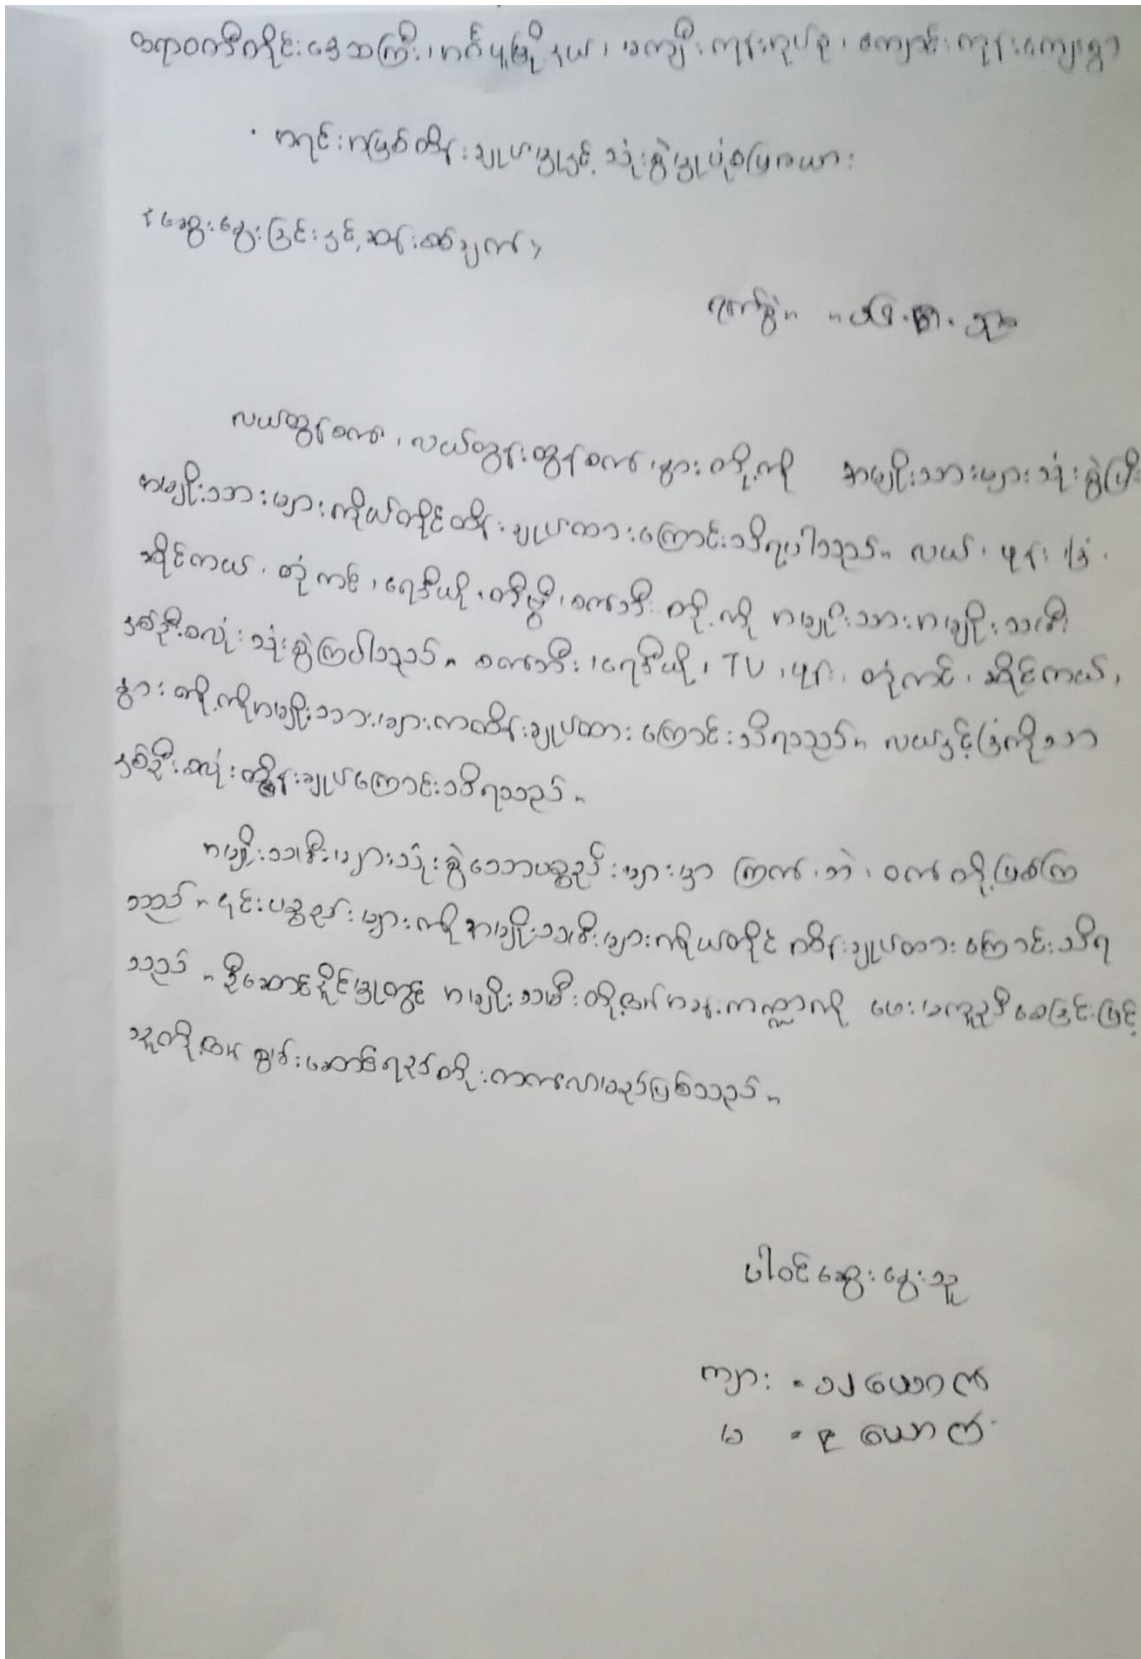 ဧရာဝတီတိုင်းဒေသကြီး၊ အင်္ဂပူမြို့နယ်၊ မကျီးကုန်းအုပ်စု၊ ကျောင်းကုန်းကျေးရွာ
အရင်းအမြစ်ထိန်းချုပ်မှုနှင့် သုံးစွဲမှုပုံစံပြဇယား
<ဆွေးနွေးခြင်းနှင့်ဆန်းစစ်ချက်>
ရက်စွဲ။
လယ်ထွန်စက်၊ လယ်ထွန်းထွန်စက်၊ နွား တို့ကို အမျိုးသားများသုံးစွဲပြီး
အမျိုးသားများကိုယ်တိုင်ထိန်းချုပ်ထားကြောင်းသိရပါသည်။ လယ်၊ ဖုန်း၊ ခြံ၊
ဆိုင်ကယ်၊ တုံကင်၊ ရေဒီယို၊ တီဗွီ၊ စက်ဘီး တို့ကို အမျိုးသားအမျိုးသမီး
နှစ်ဦးစလုံးသုံးစွဲကြပါသည်။ စက်ဘီး၊ ရေဒီယို၊ TV ၊ ဖုန်း၊ တုံကင်၊ ဆိုင်ကယ်၊
နွား တို့ကိုအမျိုးသားများကထိန်းချုပ်ထားကြောင်းသိရသည်။ လယ်နှင့်ခြံကိုသာ
နှစ်ဦးစလုံးထိန်းချုပ်ကြောင်းသိရသည်။
အမျိုးသမီးများသုံးစွဲသောပစ္စည်းများမှာ ကြက်၊ ဘဲ၊ ဝက် တို့ဖြစ်ကြ
သည်။ ၎င်းပစ္စည်းများကိုအမျိုးသမီးများကိုယ်တိုင် ထိန်းချုပ်ထားကြောင်းသိရ
သည်။ ဦးဆောင်နိုင်မှုတွင် အမျိုးသမီးတို့၏အခန်းကဏ္ဍကို ပေးမကူညီစေခြင်းဖြင့်
သူတို့၏ စွမ်းဆောင်ရည်တိုးတက်လာမည်ဖြစ်သည်။
ပါဝင်ဆွေးနွေးသူ
ကျား = ၁၂ ယောက်
မ = ၃ ယောက်